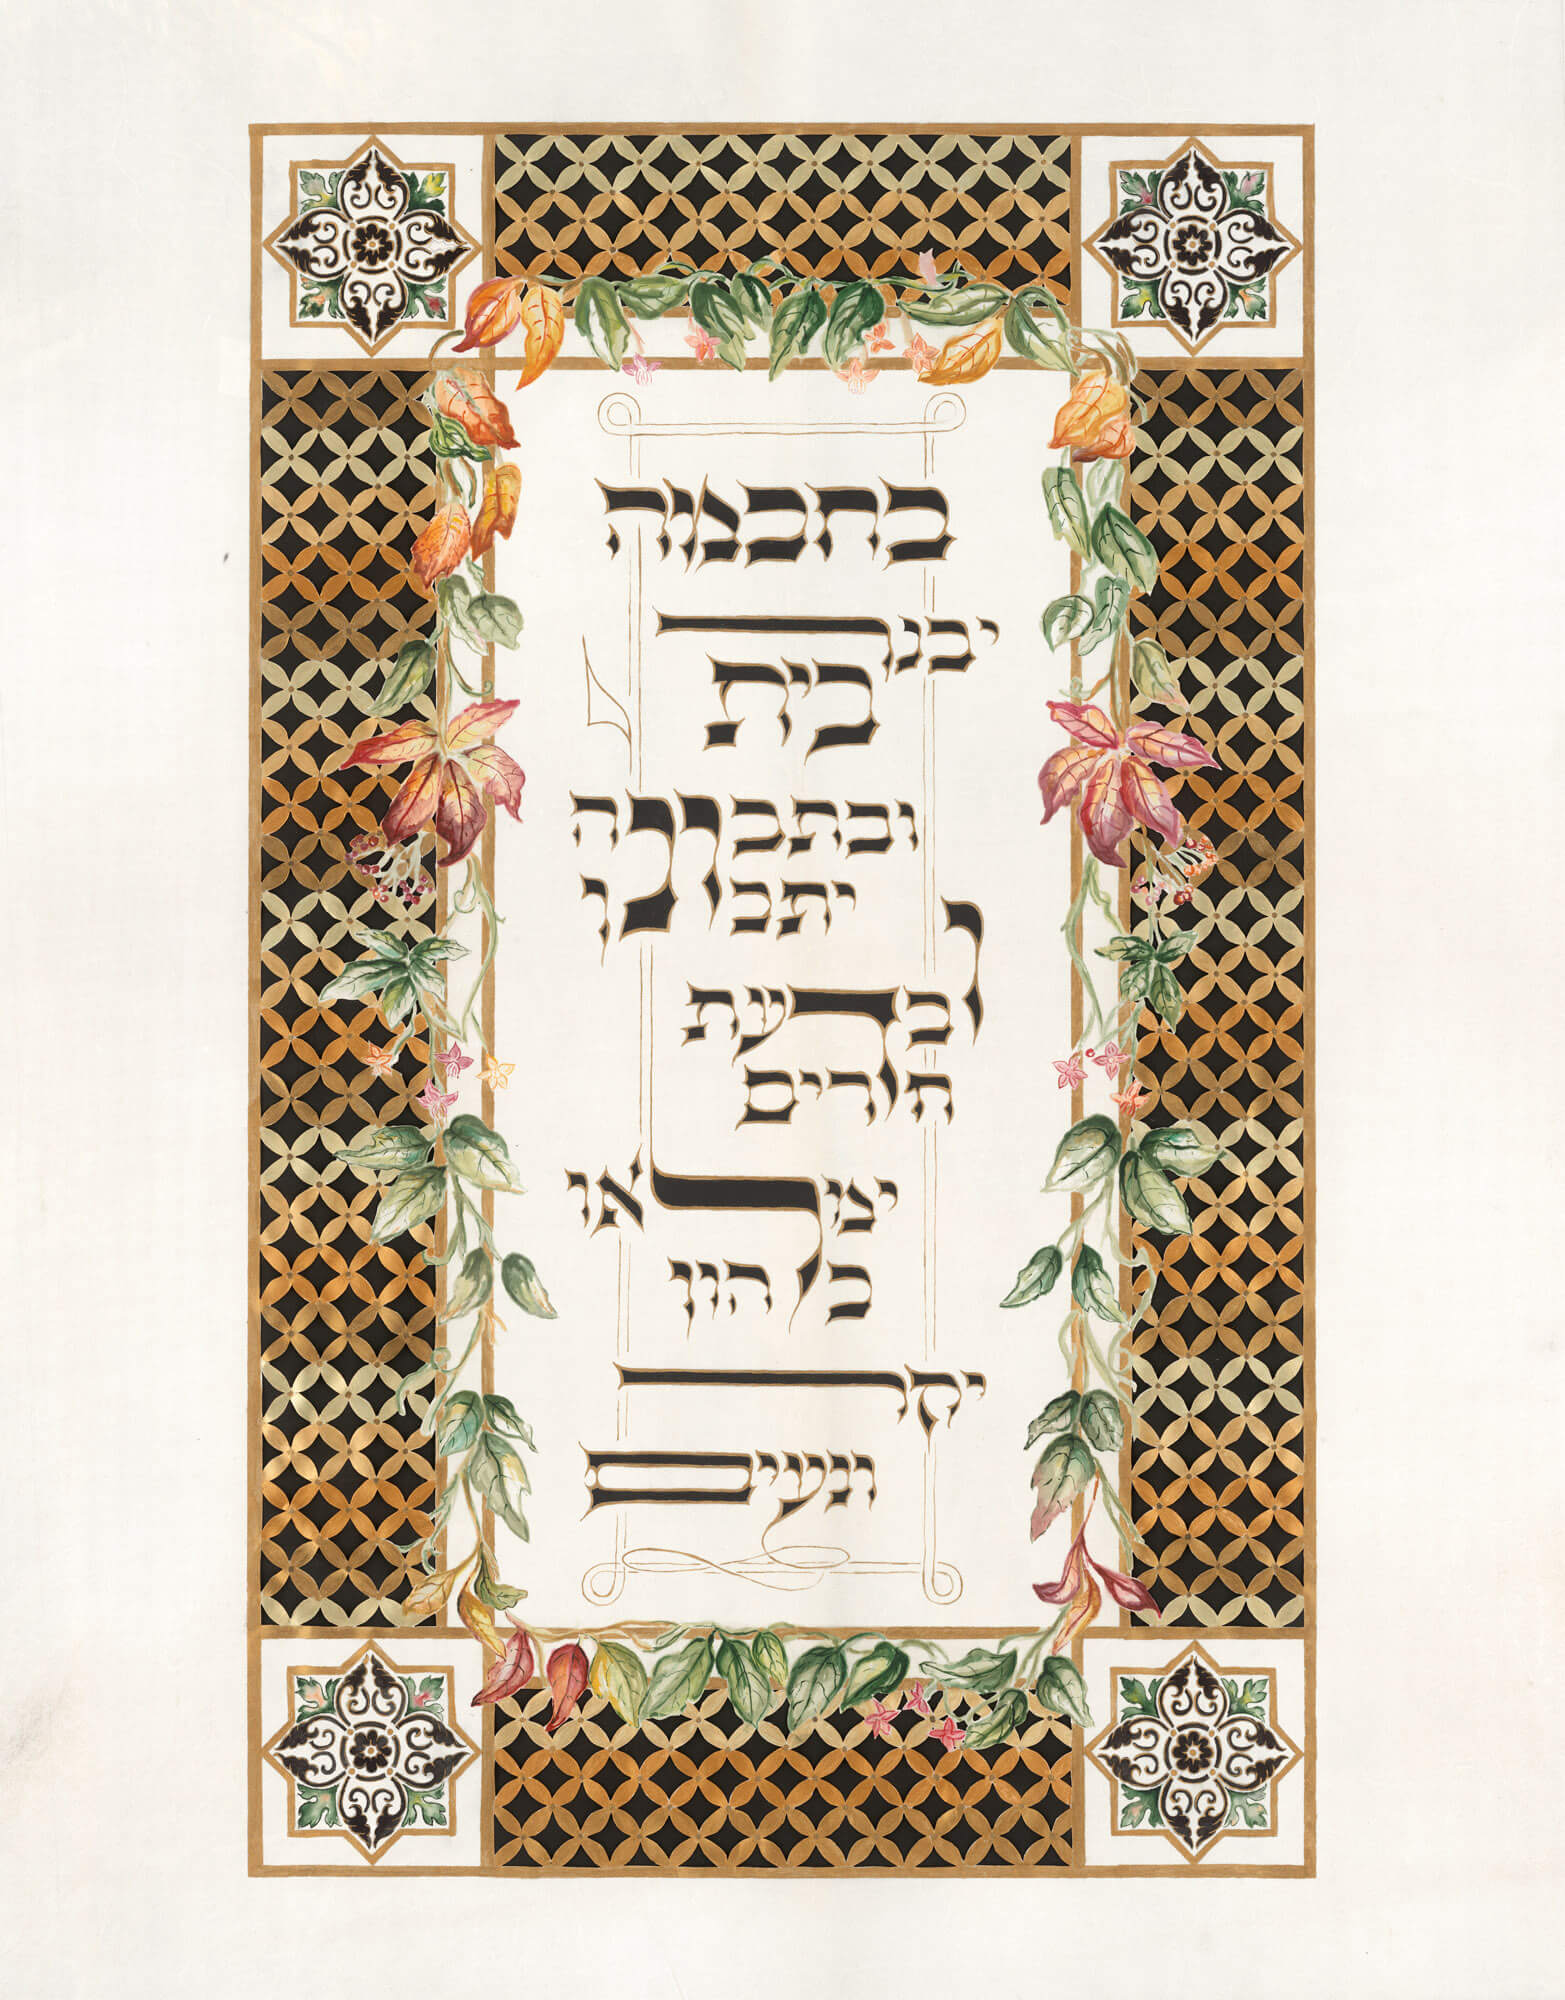 בחכמה
יבנה
בית
ובתבונה
יתכונן
ובדעת
חדרים
ימלאו
כל הון
יקר
ונעים